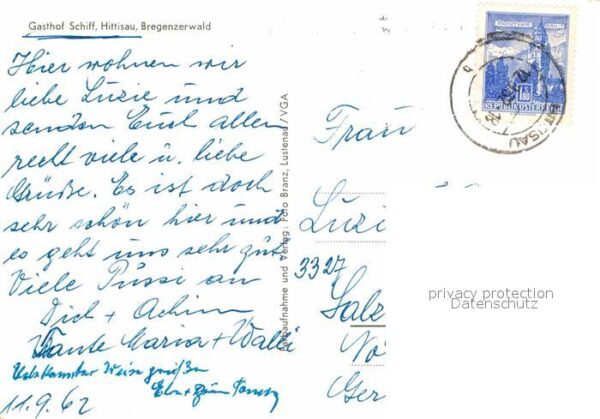 Gasthof Schiff, Hittisau, Bregenzerwald
Hier wohnen wir
liebe Luzie und
senden Euch allen
recht viele u. liebe
Grüße. Es ist doch
sehr schön hier und
es geht uns sehr gut.
Viele Pussi an
Dich + Achim
Tante Maria + Walli
Unbekannter Weise grüßen
11.9.62
Foto Branz, Lustenau / VGA
REPUBLIK ÖSTERREICH
1.80
HITTISAU
Frau
Luzi
3327
Salz
Ger
privacy protection
Datenschutz